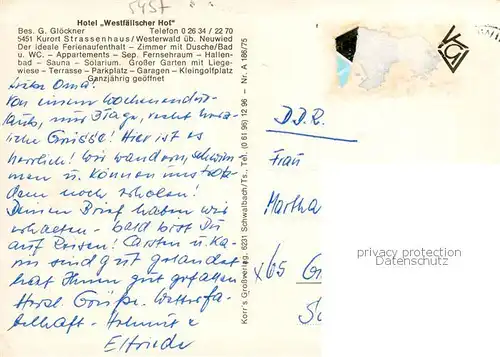 5457
Hotel „Westfälischer Hof"
Bes. G. Glöckner Telefon 0 26 34 / 22 70
5451 Kurort Strassenhaus/Westerwald üb. Neuwied
Der ideale Ferienaufenthalt – Zimmer mit Dusche/Bad
u. WC. – Appartements – Sep. Fernsehraum – Hallen-
bad – Sauna – Solarium. Großer Garten mit Liege-
wiese – Terrasse – Parkplatz – Garagen – Kleingolfplatz
Ganzjährig geöffnet
Liebe Oma!
Von einem Wochenendur-
laub, nur 3 Tage, recht herz-
liche Grüsse! Hier ist es
herrlich! Wir wandern, schwim-
men u. können uns trotz-
dem noch erholen!
Deinen Brief haben wir
erhalten – bald bist Du
auf Reisen! Carsten u. Ka-
sind gut gelandet
hat Ihnen gut gefallen
Herzl. Grüße. Wetter fa-
belhaft – Helmut &
Elfriede
Korr's Großverlag, 6231 Schwalbach/Ts., Tel. (0 61 96) 12 96 – Nr. A 186/75
KGV
D.D.R.
Frau
Martha
x65 G
privacy protection
Datenschutz